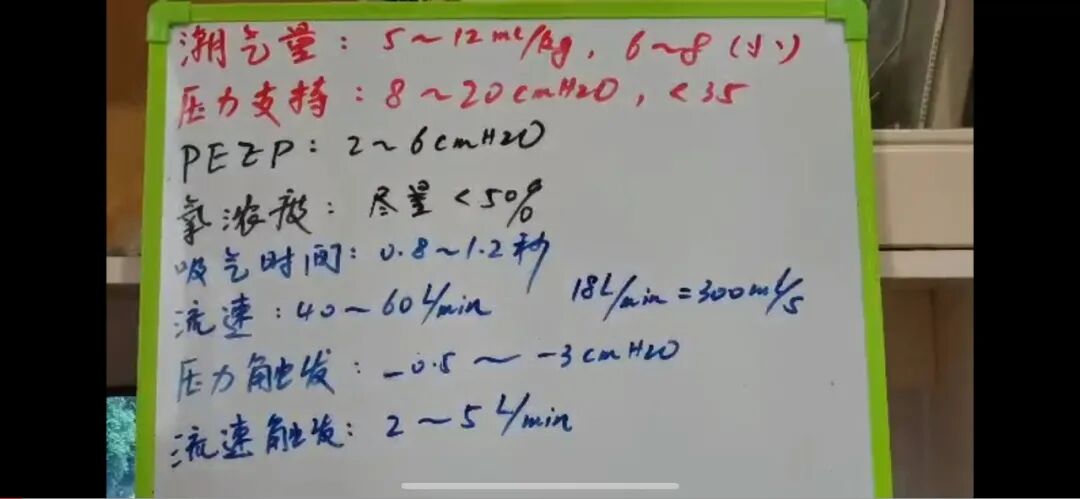 潮气量：5～12ml/kg，6～8（小）
压力支持：8～20cmH2O，<35
PEEP：2～6cmH2O
氧浓度：尽量<50%
吸气时间：0.8～1.2秒
流速：40～60L/min 18L/min=300ml/s
压力触发：-0.5～-3cmH2O
流速触发：2～5L/min